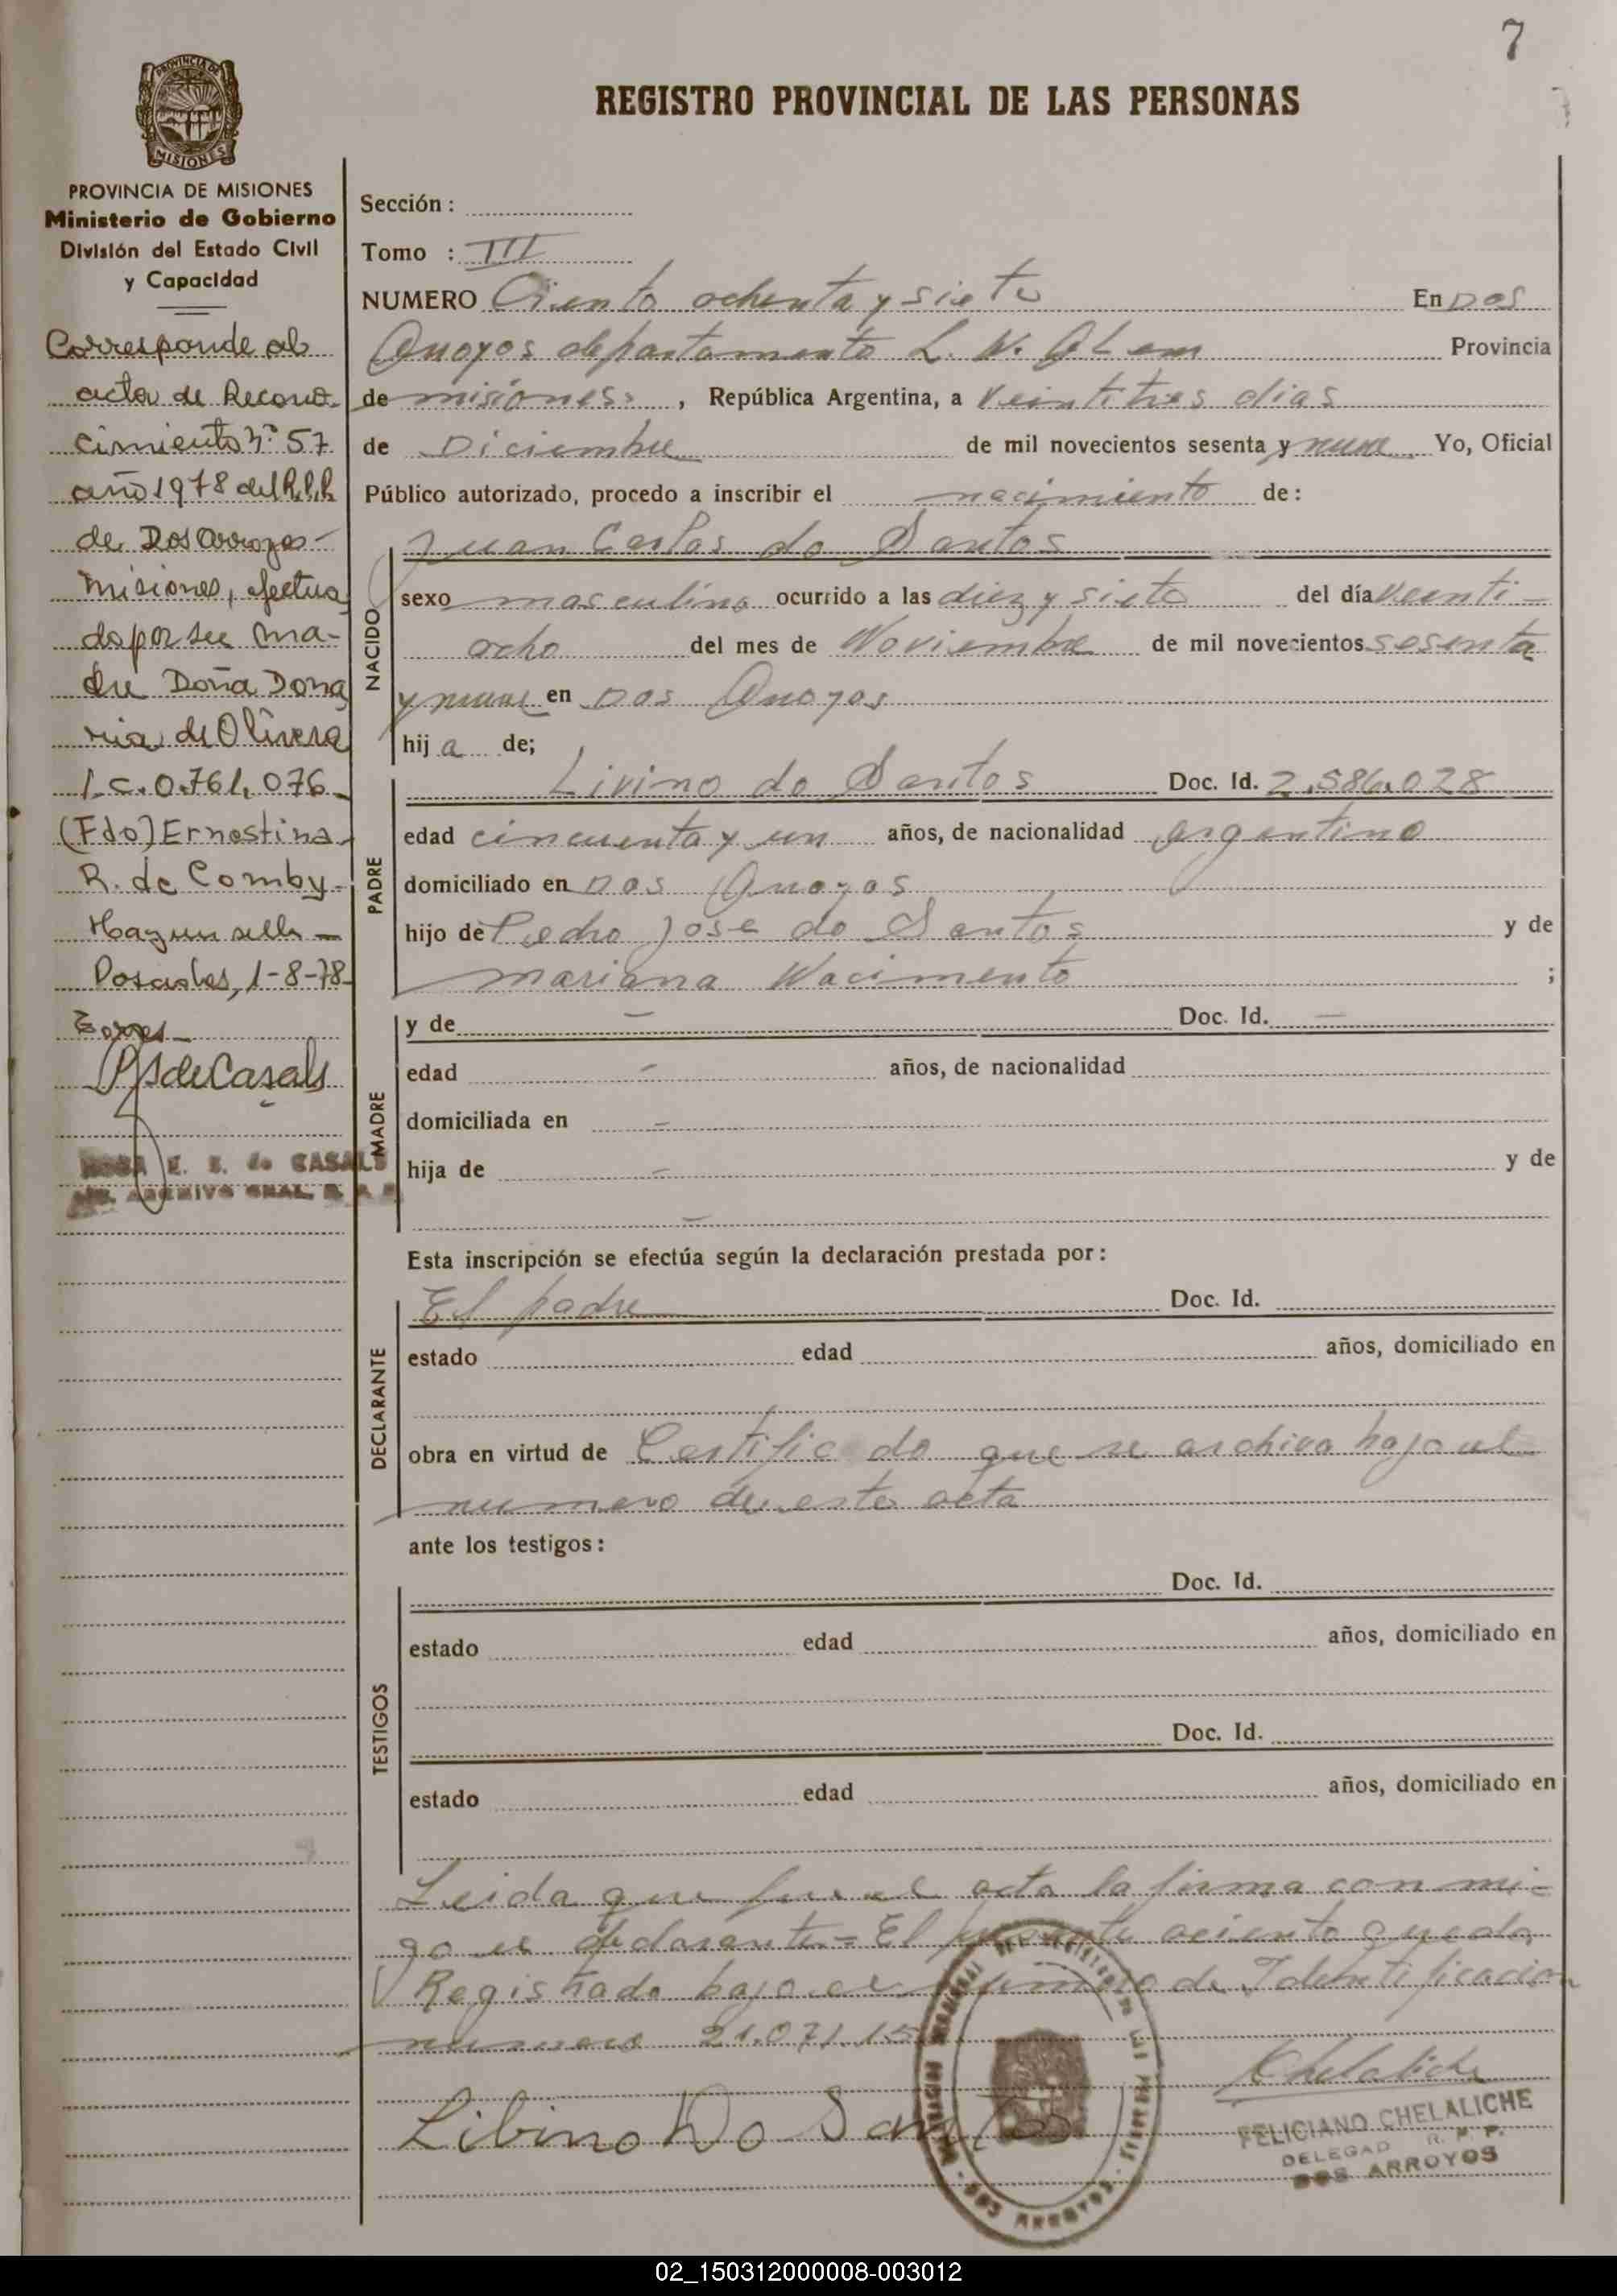 7
REGISTRO PROVINCIAL DE LAS PERSONAS
PROVINCIA DE
MISIONES
PROVINCIA DE MISIONES
Ministerio de Gobierno
División del Estado Civil
y Capacidad
Corresponde al
acta de Recono-
cimiento nº 57
año 1978 del R.P.P.
de Dos Arroyos-
Misiones, efectua
do por su ma-
dre Doña Dona
ria de Olivera
L.C. 0.761.076
(Fdo) Ernestina
R. de Comby-
Hay un sello-
Posadas, 1-8-78
Torres
de Casals
E. E. de CASALS
ARCHIVO GRAL. R. P. P.
Sección :
Tomo : III
NUMERO Ciento ochenta y siete En Dos
Arroyos departamento L. N. Alem Provincia
de misiones , República Argentina, a Veintitres dias
de Diciembre de mil novecientos sesenta y nueve Yo, Oficial
Público autorizado, procedo a inscribir el nacimiento de :
NACIDO
Juan Carlos do Santos
sexo masculino ocurrido a las diez y siete del día veinti-
ocho del mes de Noviembre de mil novecientos sesenta
y nueve en Dos Arroyos
hij a de;
PADRE
Livino do Santos Doc. Id. 2.586.028
edad cincuenta y un años, de nacionalidad argentino
domiciliado en Dos Arroyos
hijo de Pedro Jose do Santos y de
mariana Nacimento ;
MADRE
y de - Doc. Id. -
edad - años, de nacionalidad
domiciliada en -
hija de - y de
-
Esta inscripción se efectúa según la declaración prestada por :
DECLARANTE
El padre Doc. Id.
estado edad años, domiciliado en
obra en virtud de Certificado que se archiva bajo el
numero de este acta
ante los testigos :
TESTIGOS
Doc. Id.
estado edad años, domiciliado en
Doc. Id.
estado edad años, domiciliado en
Leida que fue el acta la firma con mi-
go el declarante = El presente aciento queda
Registrado bajo el numero de Identificacion
numero 21.071.15
Libino Do Santos
Chelaliche
FELICIANO CHELALICHE
DELEGAD R. P. P.
DOS ARROYOS
DOS ARROYOS
02_150312000008-003012